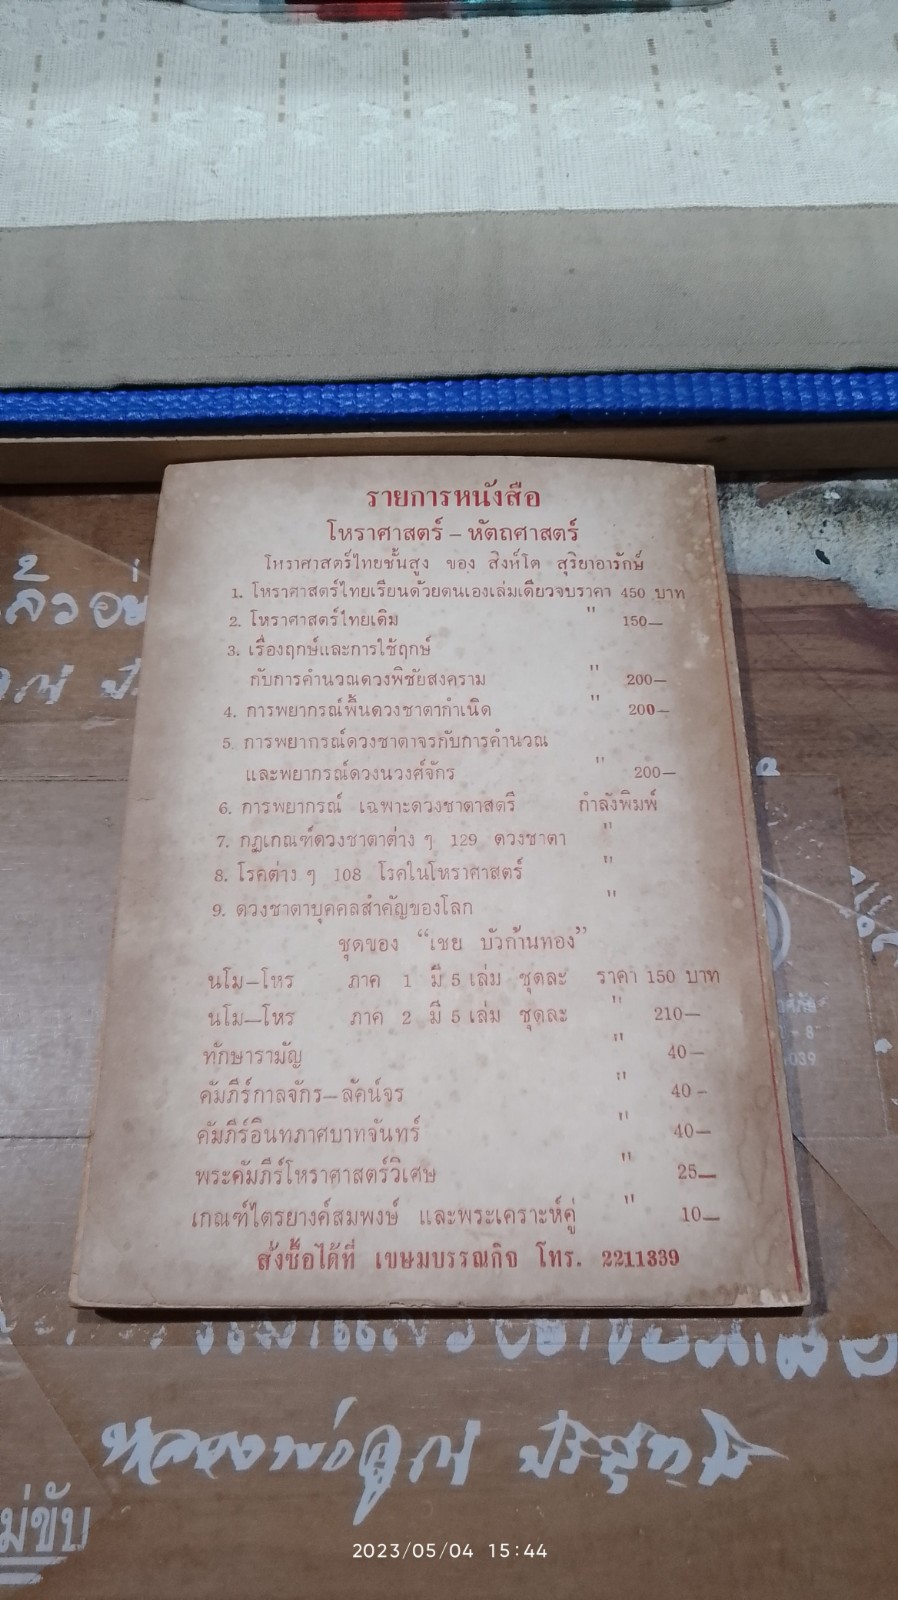 รายการหนังสือ
โหราศาสตร์ – หัตถศาสตร์
โหราศาสตร์ไทยชั้นสูง ของ สิงห์โต สุริยาอารักษ์
1. โหราศาสตร์ไทยเรียนด้วยตนเองเล่มเดียวจบราคา 450 บาท
2. โหราศาสตร์ไทยเดิม " 150—
3. เรื่องฤกษ์และการใช้ฤกษ์
กับการคำนวณดวงพิชัยสงคราม " 200—
4. การพยากรณ์พื้นดวงชาตากำเนิด " 200—
5. การพยากรณ์ดวงชาตาจรกับการคำนวณ
และพยากรณ์ดวงนวงศ์จักร " 200—
6. การพยากรณ์ เฉพาะดวงชาตาสตรี กำลังพิมพ์
7. กฎเกณฑ์ดวงชาตาต่าง ๆ 129 ดวงชาตา "
8. โรคต่าง ๆ 108 โรคในโหราศาสตร์ "
9. ดวงชาตาบุคคลสำคัญของโลก "
ชุดของ “เชย บัวก้านทอง”
นโม—โหร ภาค 1 มี 5 เล่ม ชุดละ ราคา 150 บาท
นโม—โหร ภาค 2 มี 5 เล่ม ชุดละ " 210—
ทักษารามัญ " 40—
คัมภีร์กาลจักร—ลัคน์จร " 40-
คัมภีร์อินทภาศบาทจันทร์ " 40—
พระคัมภีร์โหราศาสตร์วิเศษ " 25—
เกณฑ์ไตรยางค์สมพงษ์ และพระเคราะห์คู่ " 10—
สั่งซื้อได้ที่ เขษมบรรณกิจ โทร. 2211339
หลวงพ่อคูณ ปริสุทโธ
2023/05/04 15:44